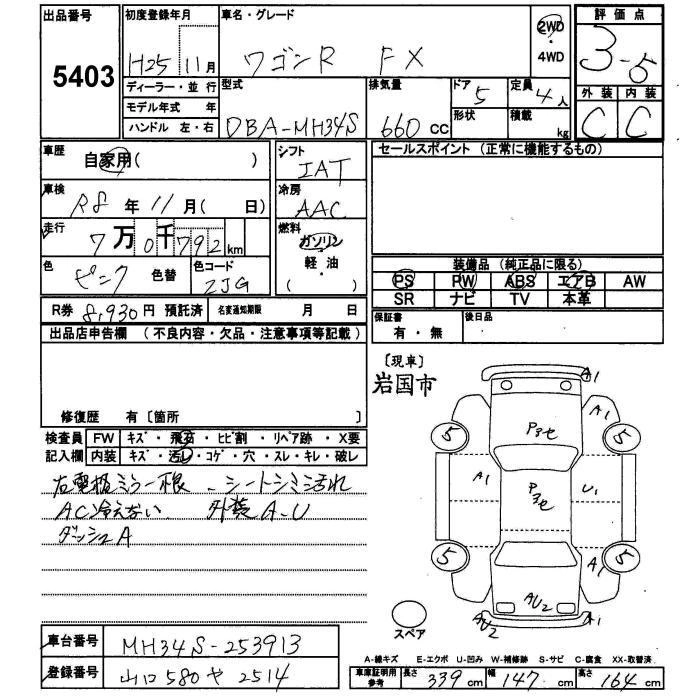 出品番号 初度登録年月 車名・グレード 評価点
5403 H25年 11月 ワゴンR FX 2WD・4WD 3-5
ディーラー・並行 型式 排気量 ドア 5 定員 4人 外装 内装
モデル年式 年 形状 積載 kg C C
ハンドル 左・右 DBA-MH34S 660cc
車歴 自家用( ) シフト IAT セールスポイント (正常に機能するもの)
車検 R8年 11月( 日) 冷房 AAC
走行 7万0千792km 燃料 ガソリン
色 ピンク 色替 色コード ZJG 軽・油
( )
装備品 (純正品に限る)
PS PW ABS エアB AW
SR ナビ TV 本革
R券 8,930円 預託済 名変通知期限 月 日
保証書 有・無 後日品
出品店申告欄 (不良内容・欠品・注意事項等記載)
修復歴 有〔箇所 〕
〔現車〕
岩国市
検査員 FW キズ・飛石・ヒビ割・リペア跡・X要
記入欄 内装 キズ・汚レ・コゲ・穴・スレ・キレ・破レ
シートシミ汚れ
AC冷えない、 外装A.U
ダッシュA
A1
P3セ A1
5 5
A1 P3セ U1
5 5
A1
AU2
AU2 A1
スペア
車台番号 MH34S-253913
登録番号 山口580や2514
A-線キズ E-エクボ U-凹み W-補修跡 S-サビ C-腐食 XX-取替済
車庫証明用参考 長さ 339cm 幅 147cm 高さ 164cm